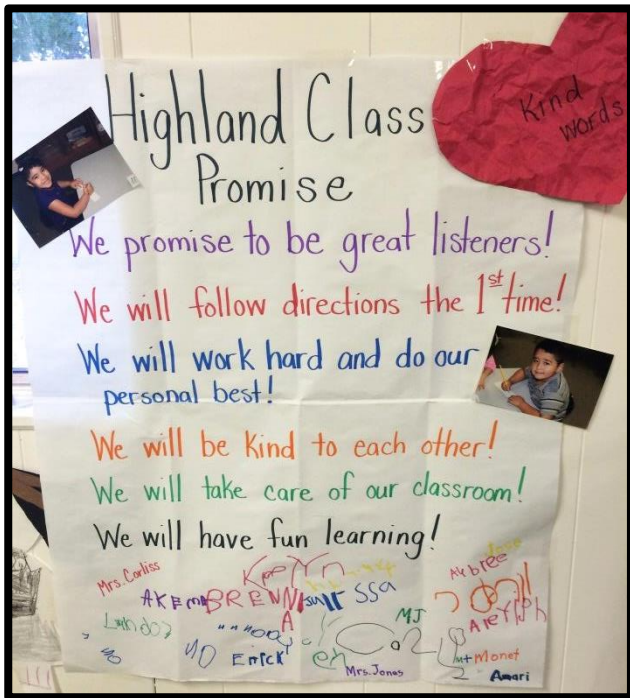 Highland Class
Promise
Kind
words
We promise to be great listeners!
We will follow directions the 1st time!
We will work hard and do our
personal best!
We will be kind to each other!
We will take care of our classroom!
We will have fun learning!
Mrs. Corliss
BRENN
A
SSA
MJ
Errick
Mrs. Jonas
Monet
Amari